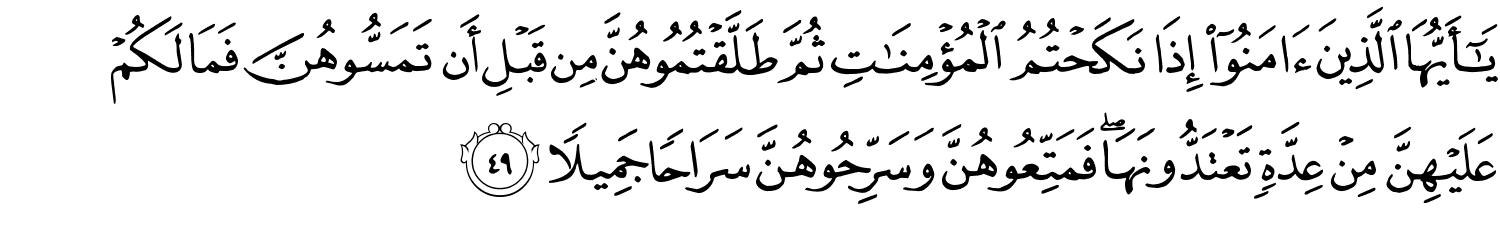 يَـٰٓأَيُّهَا ٱلَّذِينَ ءَامَنُوٓا۟ إِذَا نَكَحْتُمُ ٱلْمُؤْمِنَـٰتِ ثُمَّ طَلَّقْتُمُوهُنَّ مِن قَبْلِ أَن تَمَسُّوهُنَّ فَمَا لَكُمْ
عَلَيْهِنَّ مِنْ عِدَّةٍ تَعْتَدُّونَهَا ۖ فَمَتِّعُوهُنَّ وَسَرِّحُوهُنَّ سَرَاحًا جَمِيلًا ٤٩